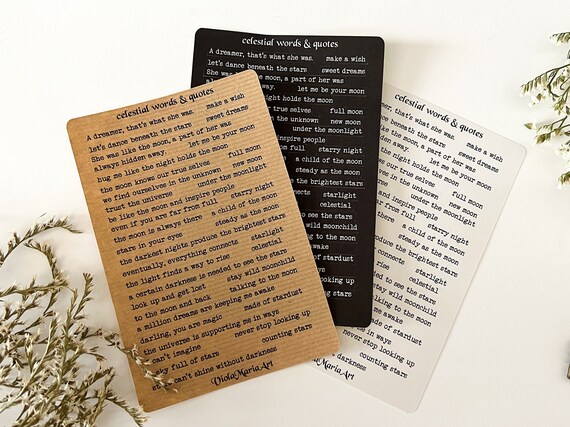 celestial words & quotes
A dreamer, that's what she was. make a wish
let's dance beneath the stars sweet dreams
She was like the moon, a part of her was
always hidden away. let me be your moon
hug me like the night holds the moon
the moon knows our true selves full moon
we find ourselves in the unknown new moon
trust the universe under the moonlight
be like the moon and inspire people
even if you are far from full starry night
the moon is always there a child of the moon
stars in your eyes steady as the moon
the darkest nights produce the brightest stars
eventually, everything connects starlight
the light finds a way to rise celestial
a certain darkness is needed to see the stars
look up and get lost stay wild moonchild
to the moon and back talking to the moon
a million dreams are keeping me awake
darling, you are magic made of stardust
the universe is supporting me in ways
I can't imagine never stop looking up
sky full of stars counting stars
can't shine without darkness
ViolaMariaArt
celestial words & quotes
A dreamer, that's what she was. make a wish
let's dance beneath the stars sweet dreams
She was like the moon, a part of her was
away. let me be your moon
night holds the moon
true selves full moon
in the unknown new moon
under the moonlight
inspire people
from full starry night
a child of the moon
steady as the moon
the brightest stars
starlight
celestial
to see the stars
wild moonchild
to the moon
me awake
of stardust
ways
looking up
stars
celestial words & quotes
that's what she was. make a wish
beneath the stars sweet dreams
the moon, a part of her was
let me be your moon
night holds the moon
our true selves full moon
in the unknown new moon
under the moonlight
and inspire people
far from full starry night
there a child of the moon
steady as the moon
produce the brightest stars
connects starlight
to rise celestial
needed to see the stars
stay wild moonchild
talking to the moon
keeping me awake
made of stardust
me in ways
never stop looking up
counting stars
darkness
MariaArt